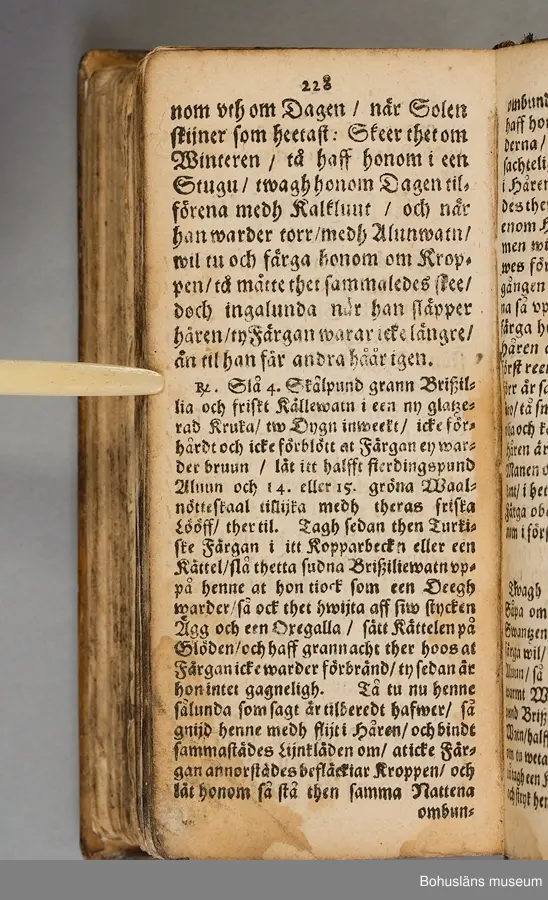 228
nom vth om Dagen / när Solen
skijner som heetast: Skeer thet om
Winteren / tå haff honom i een
Stugu / twagh honom Dagen til-
förena medh Kalkluut / och när
han warder torr / medh Alunwatn /
wil tu och färga honom om Krop-
pen / tå måtte thet sammaledes skee /
doch ingalunda när han släpper
håren / ty Färgan warar icke längre /
än til han får andra håår igen.
℞. Slå 4. Skålpund grann Brißil-
lia och friskt Källewatn i een ny glatze-
rad Kruka / tw Dygn inweekt / icke för-
hårdt och icke förblött at Färgan ey war-
der bruun / låt itt halfft fierdingspund
Aluun och 14. eller 15. gröna Waal-
nötteskaal tillijka medh theras friska
Lööff / ther til. Tagh sedan then Turki-
ske Färgan i itt Kopparbeckn eller een
Kättel / slå thetta sudna Brißiliewatn vp-
på henne at hon tiock som een Deegh
warder / så ock thet hwijta aff siw stycken
Ägg och een Oxegalla / sätt Kättelen på
Glöden / och haff grannacht ther hoos at
Färgan icke warder förbränd / ty sedan är
hon intet gagneligh. Tå tu nu henne
sålunda som sagt är tilberedt hafwer / så
gnijd henne medh flijt i Håren / och bindt
sammastädes Lijnkläden om / at icke Fär-
gan annorstädes befläckiar Kroppen / och
låt honom så stå then samma Nattena
ombun-
Bohusläns museum